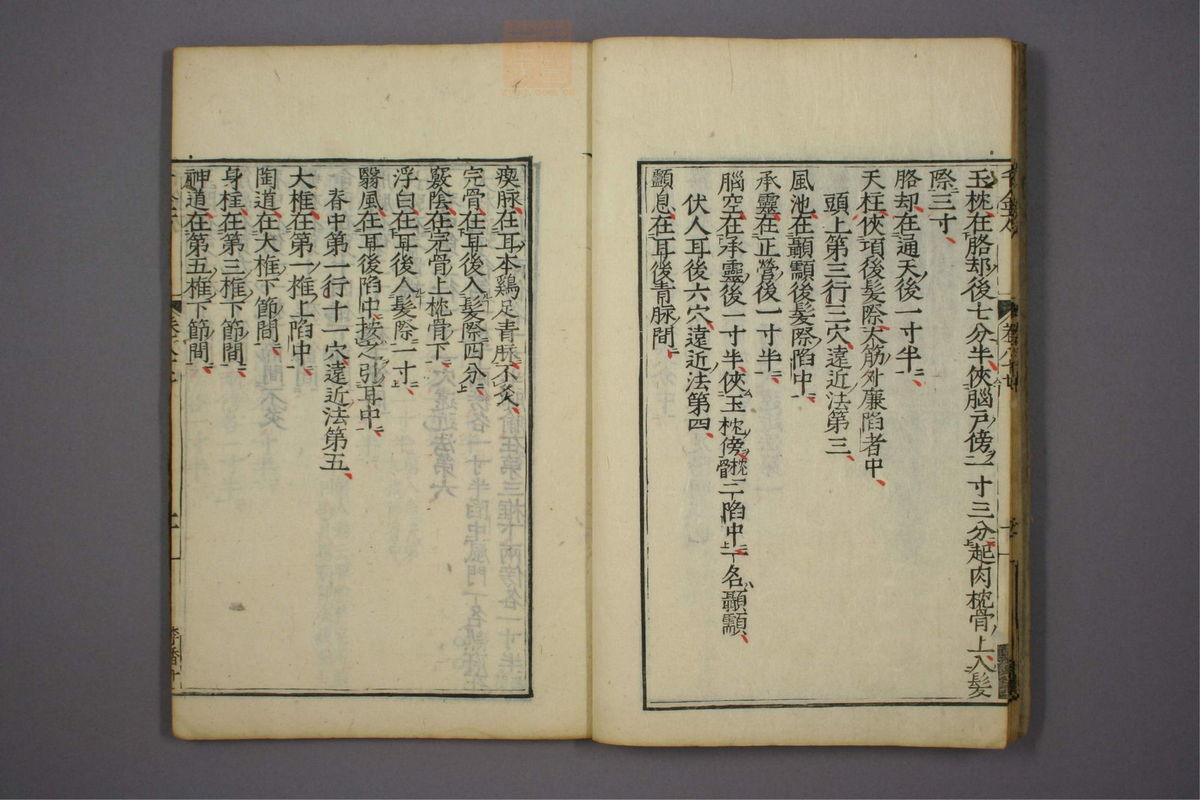 玉枕在胳却後七分半俠腦戸傍一寸三分起肉枕骨上入髮
際三寸
胳却在通天後一寸半
天柱俠項後髮際大筋外廉陷者中
頭上第三行三穴遠近法第三
風池在顳顬後髮際陷中
承靈在正營後一寸半
腦空在承靈後一寸半俠玉枕傍枕骨下陷中一名顳顬
伏人耳後六穴遠近法第四
顱息在耳後青脉間
瘈脉在耳本鷄足青脉不灸
完骨在耳後入髮際四分
竅陰在完骨上枕骨下
浮白在耳後入髮際一寸
翳風在耳後陷中按之引耳中
脊中第一行十一穴遠近法第五
大椎在第一椎上陷中
陶道在大椎下節間
身柱在第三椎下節間
神道在第五椎下節間